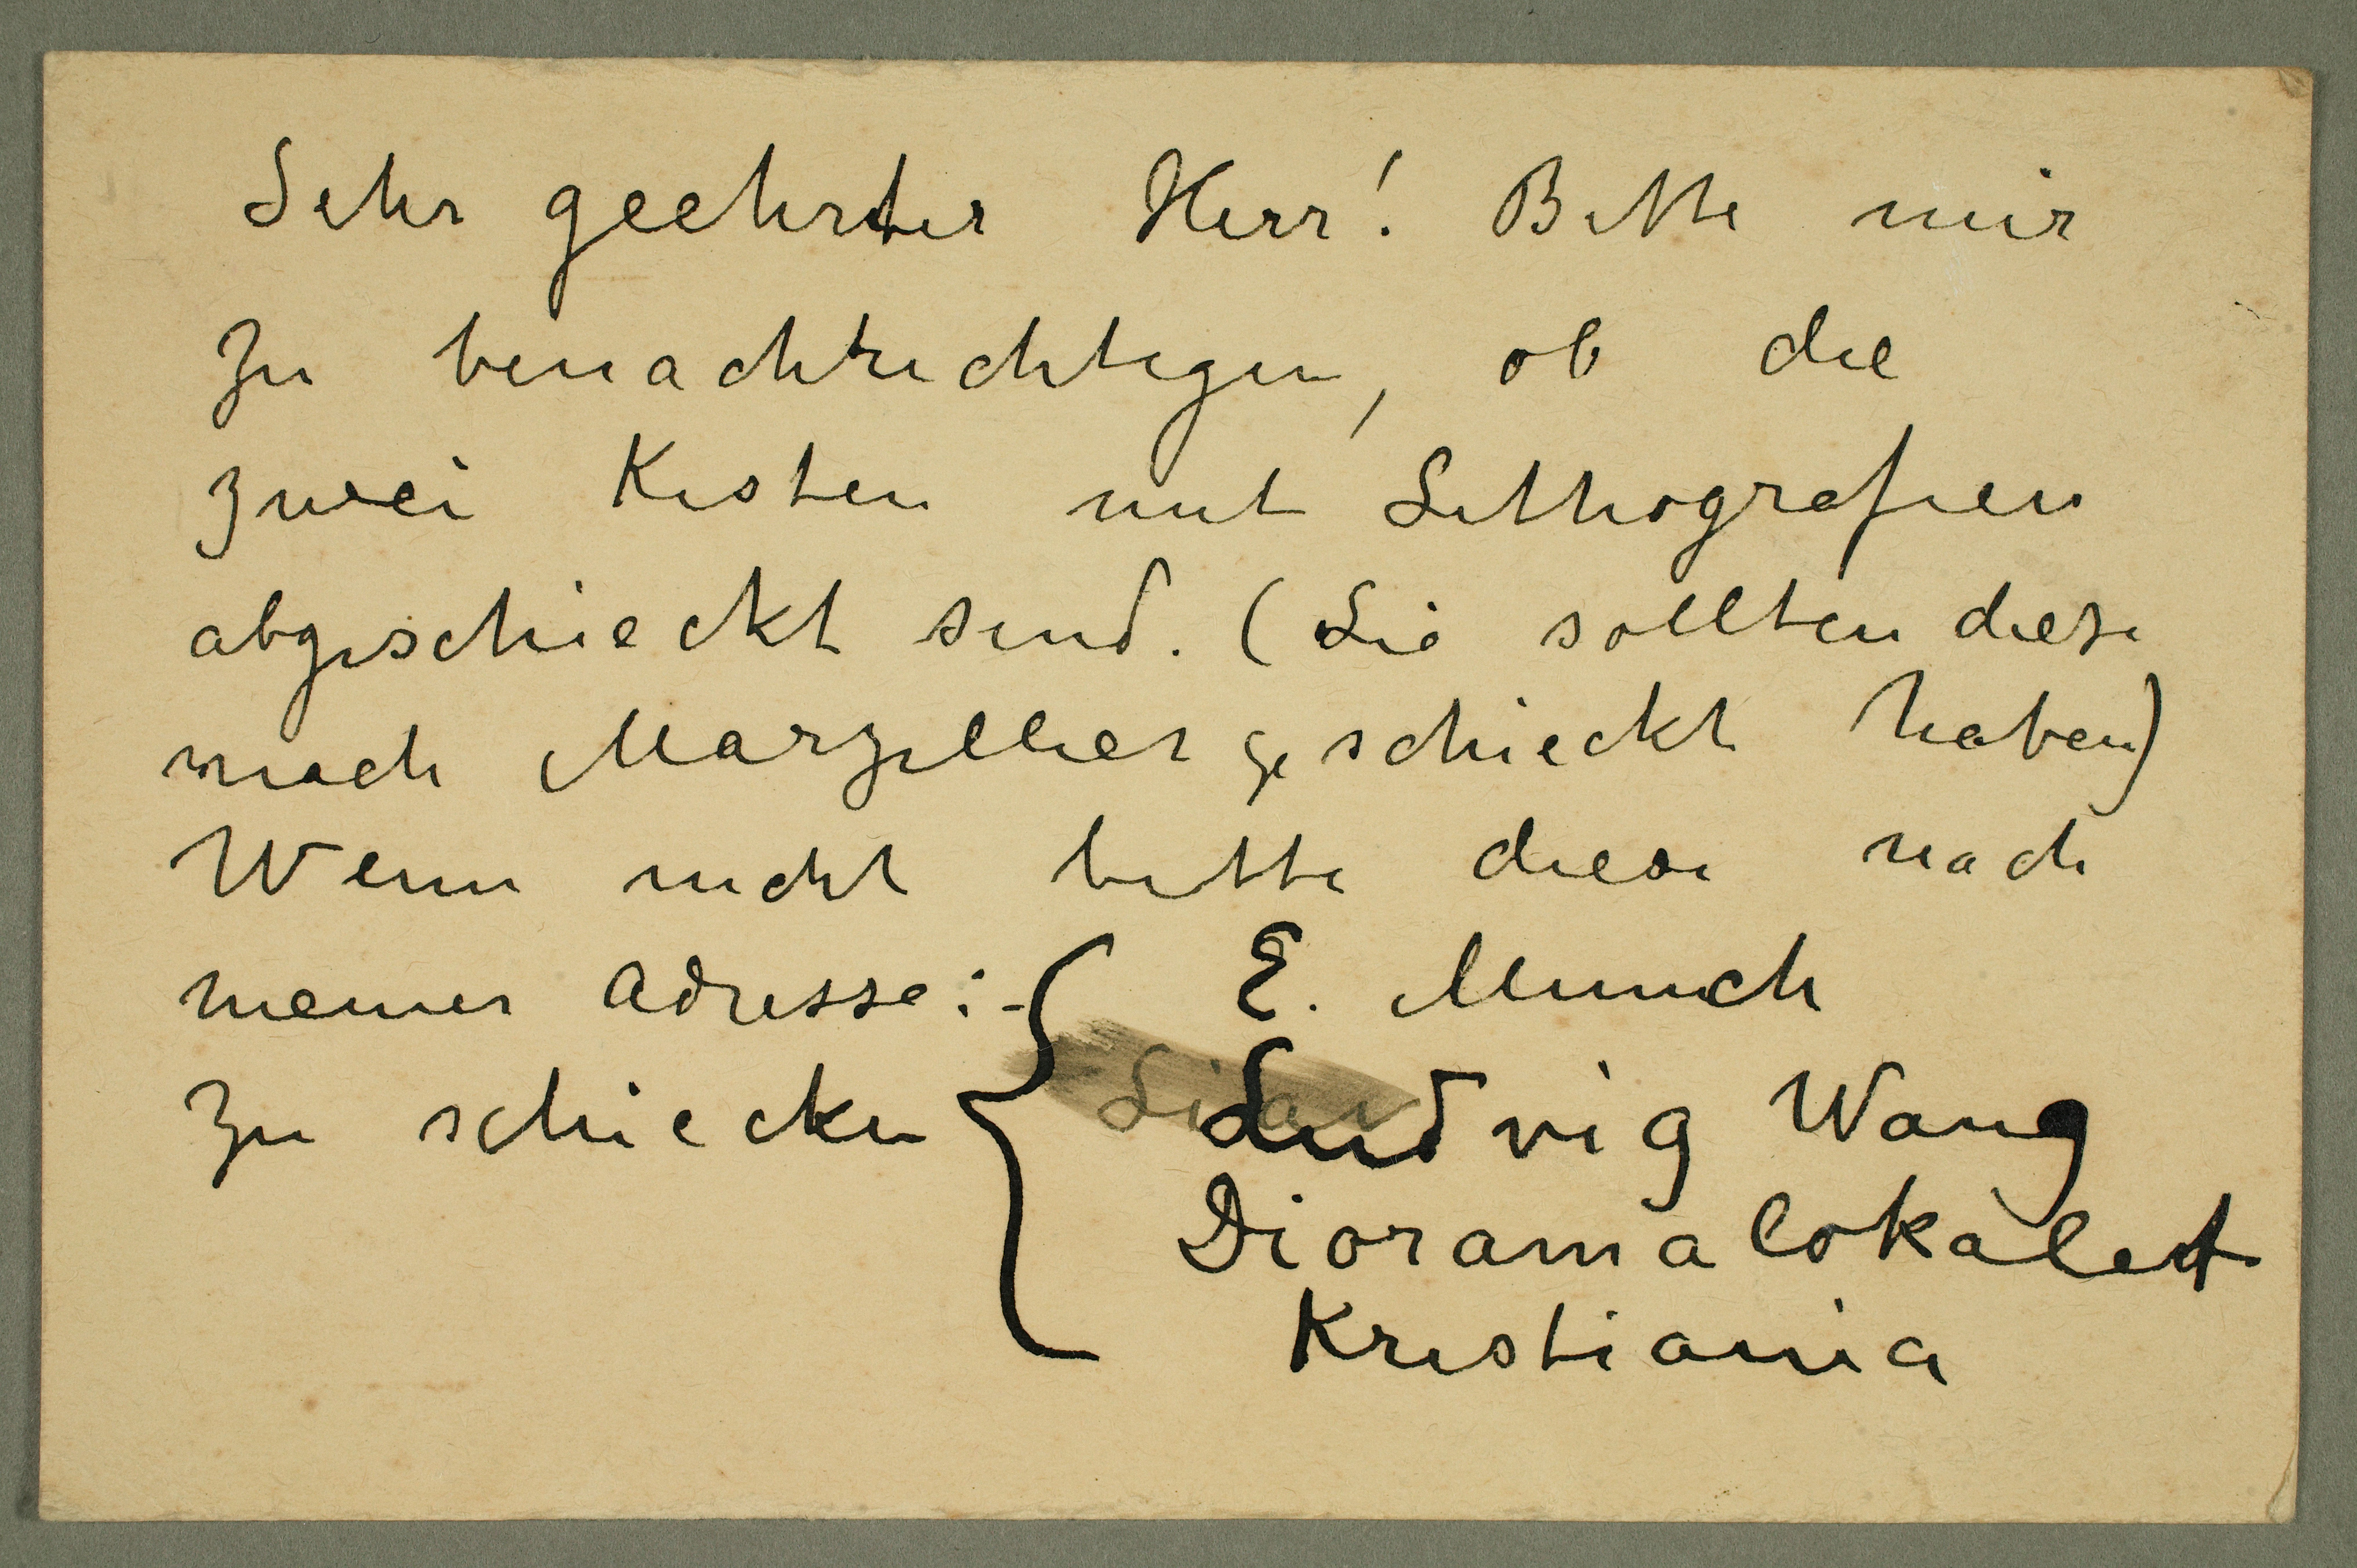 Sehr geehrter Herr! Bitte mir
zu benachrichtigen, ob die
zwei Kisten mit Lithografien
abgeschieckt sind. (Sie sollten diese
nach Marzillier geschieckt haben)
Wenn nicht bitte diese nach
meiner Adresse:- E. Munch
zu schiecken Ludvig Wang
Dioramalokalet
Kristiania